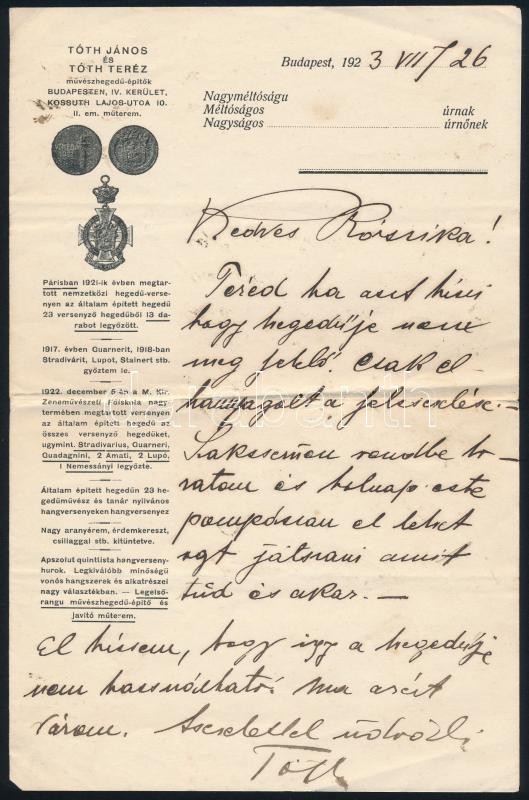 TÓTH JÁNOS
ÉS
TÓTH TERÉZ
művészhegedű-építők
BUDAPESTEN, IV. KERÜLET,
KOSSUTH LAJOS-UTCA 10.
II. em. műterem.
Párisban 1921-ik évben megtar-
tott nemzetközi hegedű-verse-
nyen az általam épített hegedű
23 versenyző hegedűből 13 da-
rabot legyőzött.
1917. évben Guarnerit, 1918-ban
Stradivárit, Lupot, Stainert stb.
győztem le.
1922. december 5-én a M. Kir.
Zeneművészeti Főiskola nagy-
termében megtartott versenyen
az általam épített hegedű az
összes versenyző hegedűket,
ugymint. Stradivarius, Guarneri,
Guadagnini, 2 Amati, 2 Lupó,
1 Nemessányi legyőzte.
Általam épített hegedűn 23 he-
gedűművész és tanár nyilvános
hangversenyeken hangversenyez
Nagy aranyérem, érdemkereszt,
csillaggal stb. kitüntetve.
Apszolut quintlista hangverseny-
hurok. Legkiválóbb minőségű
vonós hangszerek és alkatrészei
nagy választékban. — Legelső-
rangu művészhegedű-építő és
javító műterem.
Budapest, 1923 VII/26
Nagyméltóságu
Méltóságos úrnak
Nagyságos úrnőnek
Kedves Rózsika!
Teréd ha azt hiszi
hogy hegedűje nem
meg felelő. Csak el
a felszerelése.—
rendbe ho-
zatom és holnap este
pompásan el lehet
rajt játszani amit
tud és akar.—
El hiszem, hogy így a hegedűje
nem használható. Ma azért
várom. Szeretettel üdvözli
Tóth
darabanth